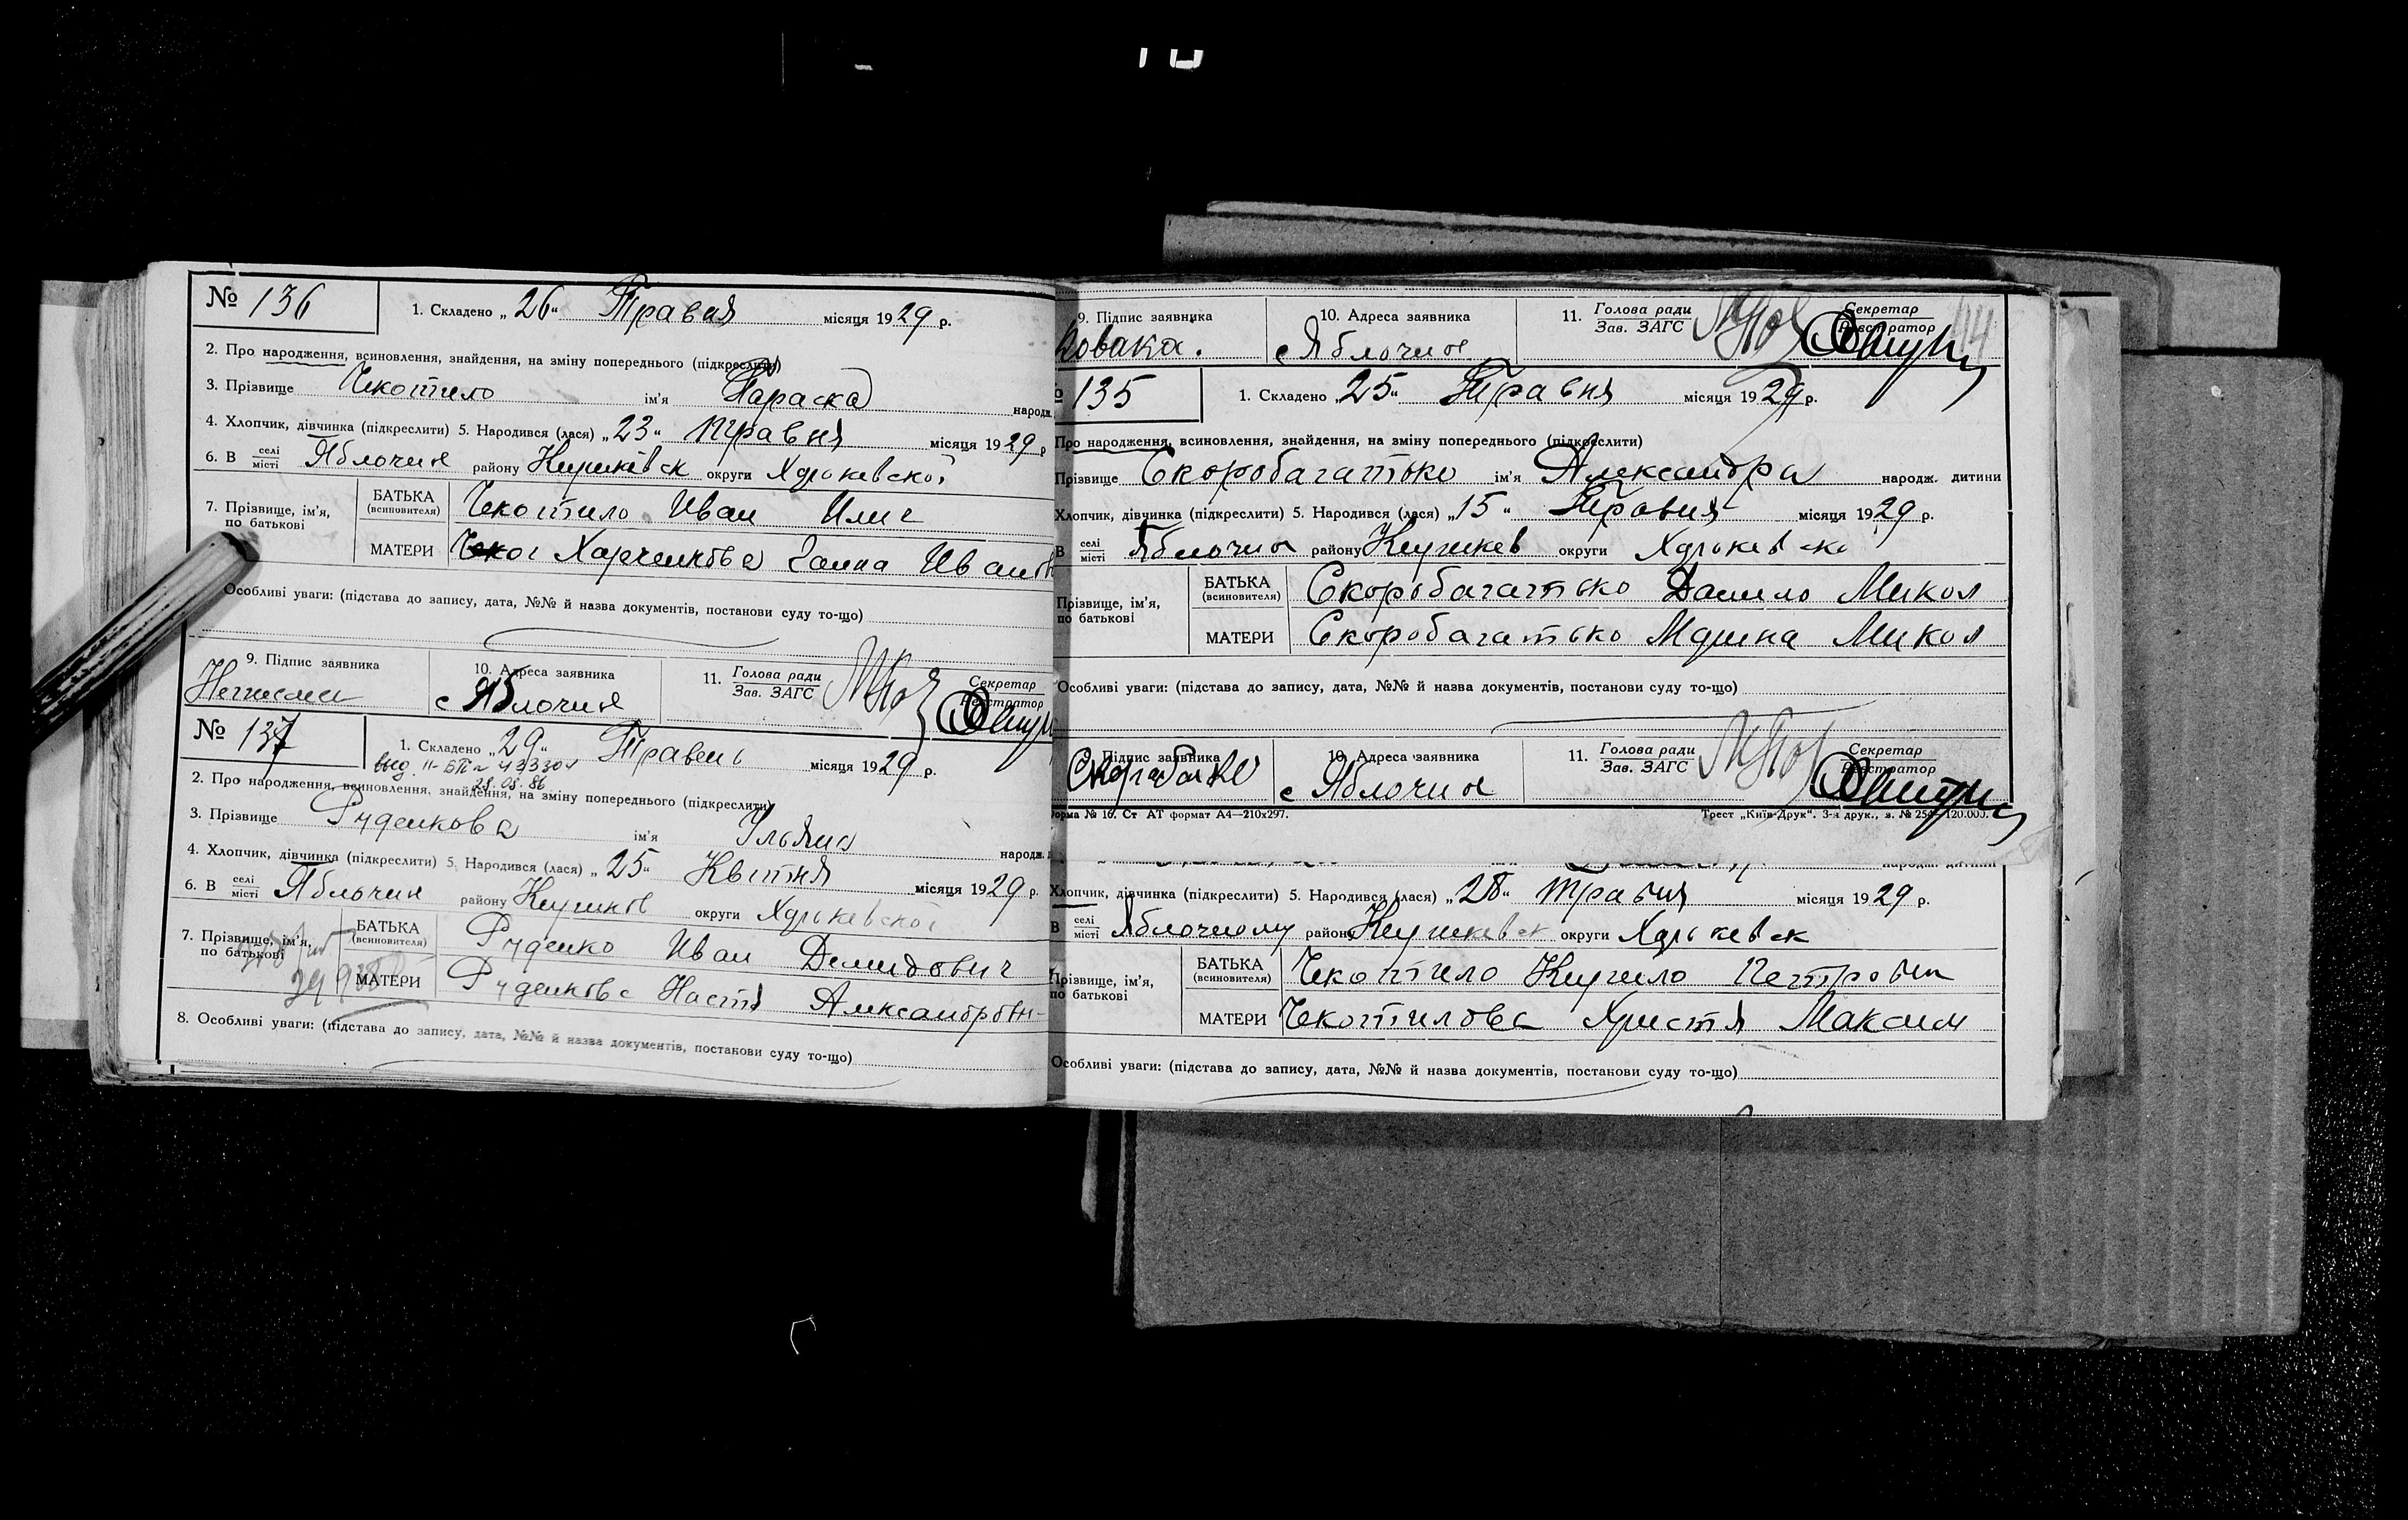 № 136
1. Складено „ 26 “ Травня місяця 1929 р.
2. Про народження, всиновлення, знайдення, на зміну попереднього (підкреслити)
3. Прізвище Чкотило ім'я Параска народж.
4. Хлопчик, дівчинка (підкреслити) 5. Народився (лася) „ 23 “ травня місяця 1929 р
6. В селі місті Яблочня району округи Харькевської
7. Прізвище, ім'я, по батькові
БАТЬКА (всиновителя) Чкотило Иван Илич
МАТЕРИ Харченкова Ганна Иванов
Особливі уваги: (підстава до запису, дата, №№ й назва документів, постанови суду то-що)
9. Підпис заявника
10. Адреса заявника с Яблочня
11. Голова ради Зав. ЗАГС
Секретар Реєстратор
№ 137
1. Складено „ 29 “ Травень місяця 1929 р.
28.08.86
2. Про народження, всиновлення, знайдення, на зміну попереднього (підкреслити)
3. Прізвище Руденкова ім'я Ульяна народж.
4. Хлопчик, дівчинка (підкреслити) 5. Народився (лася) „ 25 “ Квітня місяця 1929 р.
6. В селі місті Яблочня району округи Харькевської
7. Прізвище, ім'я, по батькові
БАТЬКА (всиновителя) Руденко Иван Демидович
МАТЕРИ Руденкова Настя Александровн
8. Особливі уваги: (підстава до запису, дата, №№ й назва документів, постанови суду то-що)
9. Підпис заявника
10. Адреса заявника с Яблочня
11. Голова ради Зав. ЗАГС
Секретар Реєстратор
135
1. Складено 25 “ Травня місяця 1929 р.
Про народження, всиновлення, знайдення, на зміну попереднього (підкреслити)
Прізвище Скоробагатько ім'я Александра народж. дитини
Хлопчик, дівчинка (підкреслити) 5. Народився (лася) „ 15 “ Травня місяця 1929 р.
В селі місті Яблочня району округи Харькевско
Прізвище, ім'я, по батькові
БАТЬКА (всиновителя) Скоробагатько Данило Микол
МАТЕРИ Скоробагатько Марина Микол
Особливі уваги: (підстава до запису, дата, №№ й назва документів, постанови суду то-що)
Підпис заявника
10. Адреса заявника с Яблочня
11. Голова ради Зав. ЗАГС
Секретар Реєстратор
форма № 16. Ст АТ формат А4—210x297.
Трест „Київ-Друк“. 3-я друк., з. № 254—120.000.
народж. дитини
Хлопчик, дівчинка (підкреслити) 5. Народився (лася) „ 28 “ травня місяця 1929 р.
В селі місті Яблочному району округи Харькевск
Прізвище, ім'я, по батькові
БАТЬКА (всиновителя) Чкотило Кирило Петрович
МАТЕРИ Чкотилова Христя Максим
Особливі уваги: (підстава до запису, дата, №№ й назва документів, постанови суду то-що)